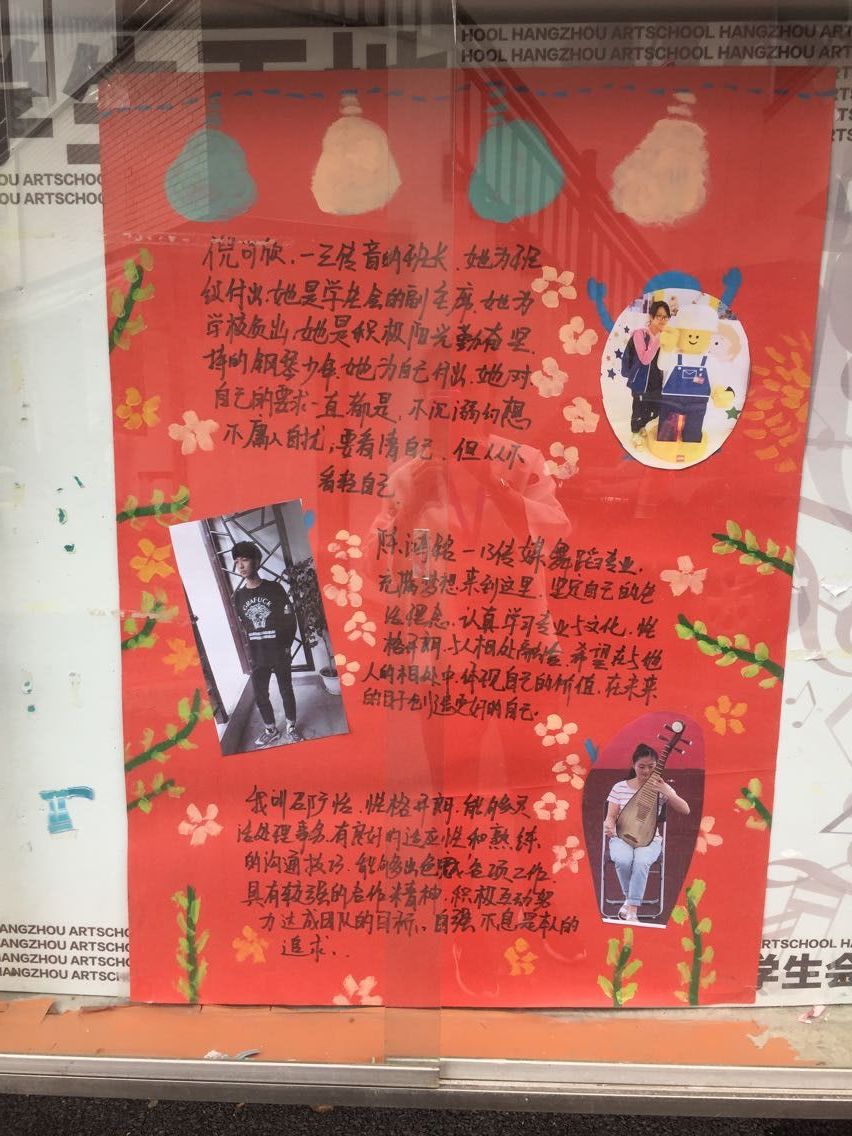 HOOL HANGZHOU ARTSCHOOL HANGZHOU ART
HOOL HANGZHOU ARTSCHOOL HANGZHOU ART
OU ARTSCHOO
OU ARTSCHOO
倪可欣，一三传音的班长，她为班
级付出，她是学生会的副主席，她为
学校负出，她是积极阳光勤奋坚
持的钢琴少年，她为自己付出，她对
自己的要求一直都是，不沉溺幻想
不庸人自扰，要看清自己，但从不
看轻自己
一13传媒舞蹈专业，
梦想来到这里，坚定自己的
理念，认真学习专业与文化，性
格开朗，与人相处融洽，希望在与他
人的相处中，体现自己的价值，在未来
的日子创造更好的自己。
我叫石，性格开朗，能够灵
活处理事务，有良好的适应性和熟练
的沟通技巧，能够出色 各项工作，
具有较强的合作精神，积极互动努
力达成团队的目标，自强不息是本人的
追求、
GRAFUCK
LEGO
HANGZHOU ARTSCHO
HANGZHOU ARTSCHO
HANGZHOU ARTSC
HANGZHOU ARTSC
ARTSCHOOL HA
学生会